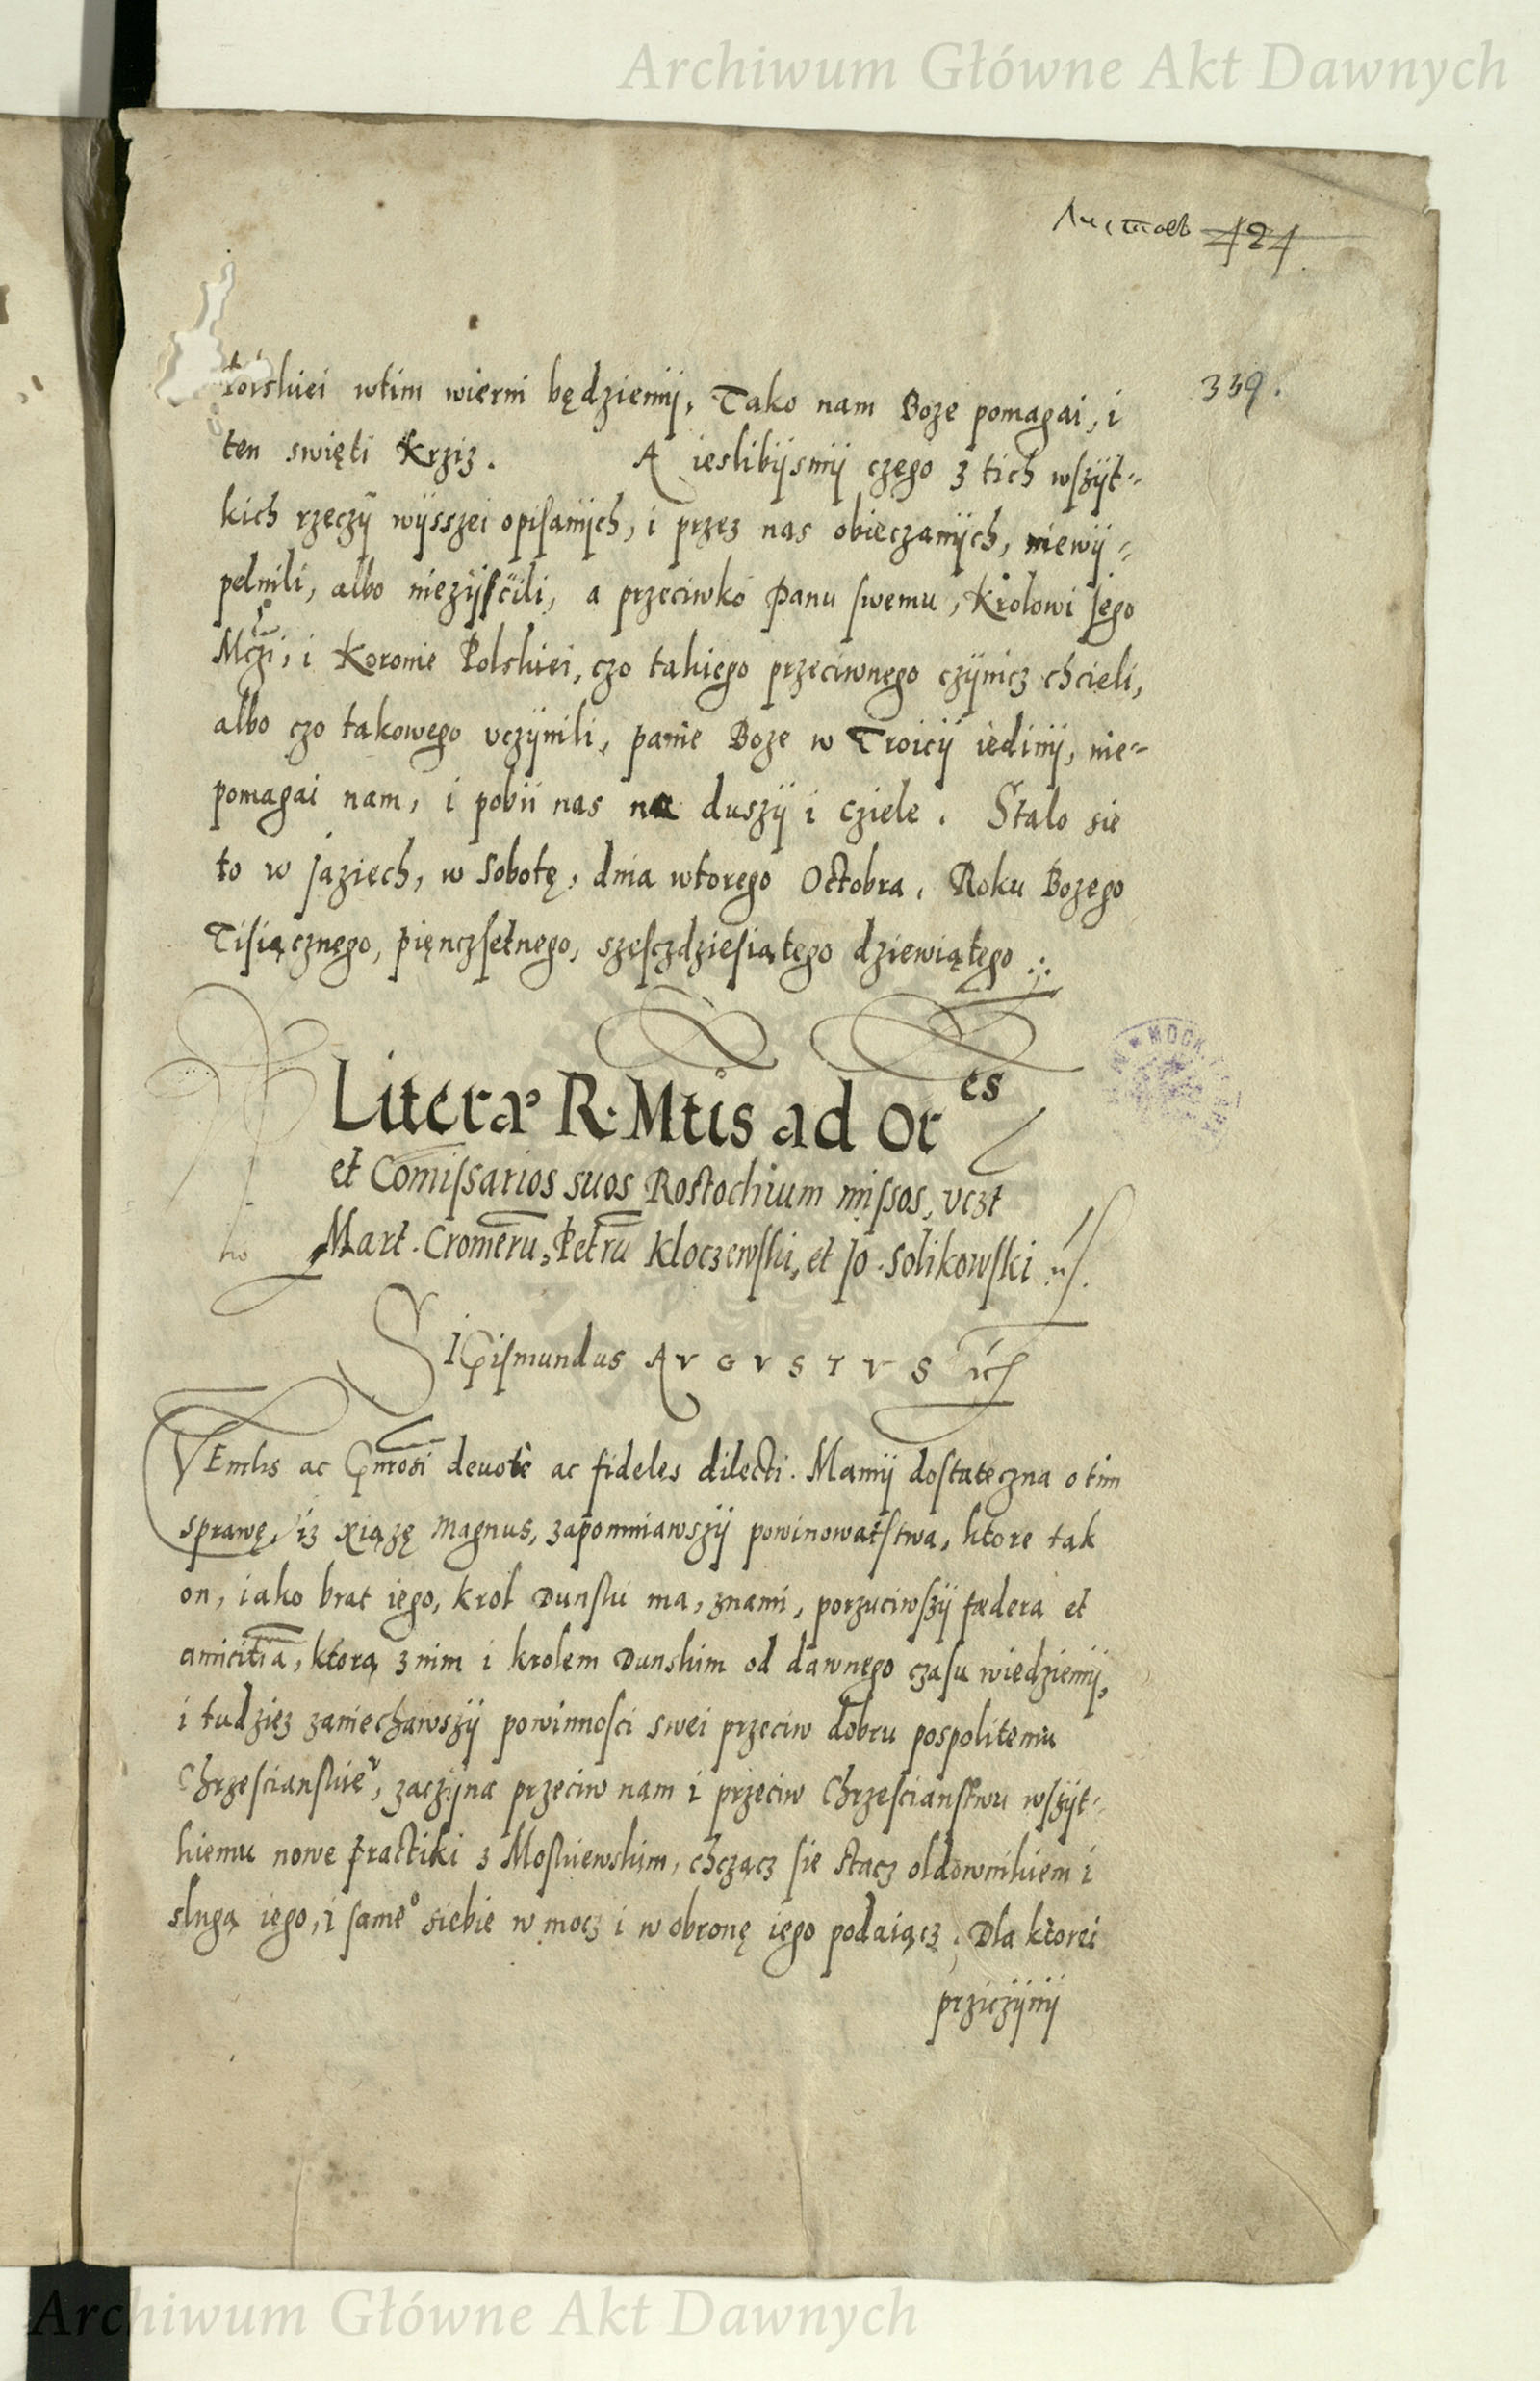 Archiwum Główne Akt Dawnych
Листовъ 424
339.
Polskiei wtim wierni będziemÿ. Tako nam Boze pomagai, i
ten swięti Krziz. A ieslibÿsmÿ czego z tich wszÿt-
kich rzeczÿ wÿsszei opisanÿch, i przez nas obieczanÿch, niewÿ-
pelnili, albo niezÿscili, a przeciwko Panu swemu, Krolowi Jego
Mczi, i Koronie Polskiei, czo takiego przeciwnego czÿnicz chcieli,
albo czo takowego vczÿnili, panie Boze w Troicÿ iedinÿ, nie-
pomagai nam, i pobii nas na duszÿ i cziele. Stalo sie
to w Jaziech, w Sobotę, dnia wtorego Octobra, Roku Bozego
Tisiącznego, pięnczsetnego, szesczdziesiątego dziewiątego
Literæ R. Mtis ad Or es
et Comissarios suos Rostochium missos, vczt
Mart. Cromerū, Petrū Kloczewski, et Jo. Solikowski
Sigismundus AVGVSTVS
ac Gnrosi deuote ac fideles dilecti. Mamÿ dostateczna o tim
sprawę, iz xiązę Magnus, zapomniawszÿ powinowatstwa, ktore tak
on, iako brat iego, krol Dunski ma, znami, porzuciwszÿ fœdera et
amicitiā, ktorą znim i krolem Dunskim od dawnego czasu wiedziemÿ,
i tudziez zaniechawszÿ powinnosci swei przeciw dobru pospolitemu
Chrzescianskieᵛ, zaczÿna przeciw nam i przeciw Chrzescianstwu wszÿt-
kiemu nowe practiki z Moskiewskim, chcząc sie stacz oldownikiem i
slugą iego, i sameº siebie w mocz i w obronę iego podaiącz. Dla ktorei
prziczÿnÿ
Archiwum Główne Akt Dawnych